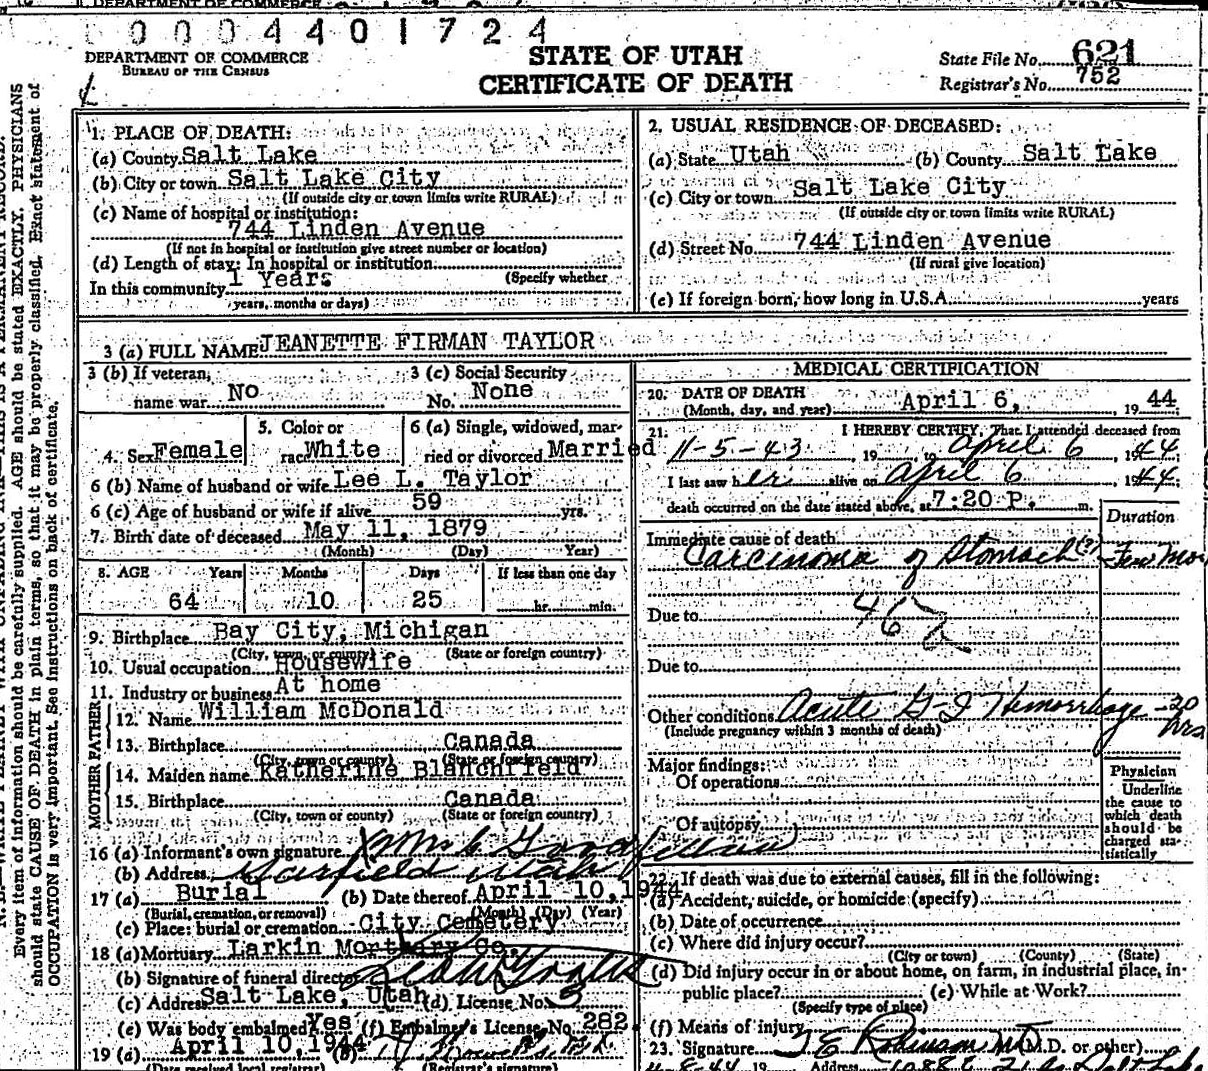 DEPARTMENT OF COMMERCE
0 0 0 4 4 0 1 7 2 4
DEPARTMENT OF COMMERCE
BUREAU OF THE CENSUS
STATE OF UTAH
CERTIFICATE OF DEATH
State File No. 621
Registrar's No. 752
Every item of information should be carefully supplied. AGE should be stated EXACTLY. PHYSICIANS
should state CAUSE OF DEATH in plain terms, so that it may be properly classified. Exact statement of
OCCUPATION is very important. See instructions on back of certificate.
1. PLACE OF DEATH:
(a) County Salt Lake
(b) City or town Salt Lake City
(If outside city or town limits write RURAL)
(c) Name of hospital or institution:
744 Linden Avenue
(If not in hospital or institution give street number or location)
(d) Length of stay: In hospital or institution
(Specify whether
In this community 1 Years
years, months or days)
2. USUAL RESIDENCE OF DECEASED:
(a) State Utah (b) County Salt Lake
(c) City or town Salt Lake City
(If outside city or town limits write RURAL)
(d) Street No. 744 Linden Avenue
(If rural give location)
(e) If foreign born, how long in U.S.A. years
3 (a) FULL NAME JEANETTE FIRMAN TAYLOR
3 (b) If veteran, name war No
3 (c) Social Security No. None
4. Sex Female
5. Color or race White
6 (a) Single, widowed, married or divorced Married
6 (b) Name of husband or wife Lee L. Taylor
6 (c) Age of husband or wife if alive 59 yrs.
7. Birth date of deceased May 11, 1879
(Month) (Day) Year)
8. AGE Years Months Days If less than one day
64 10 25 hr. min.
9. Birthplace Bay City, Michigan
(City, town, or county) (State or foreign country)
10. Usual occupation Housewife
11. Industry or business At home
FATHER
12. Name William McDonald
13. Birthplace Canada
(City, town or county) (State or foreign country)
MOTHER
14. Maiden name Katherine Blanchfield
15. Birthplace Canada
(City, town or county) (State or foreign country)
16 (a) Informant's own signature Mrs C Goodfellow
(b) Address Garfield Utah
17 (a) Burial (b) Date thereof April 10, 1944
(Burial, cremation, or removal) (Month) (Day) (Year)
(c) Place: burial or cremation City Cemetery
18 (a) Mortuary Larkin Mortuary Co.
(b) Signature of funeral director
(c) Address Salt Lake, Utah (d) License No. 3
(e) Was body embalmed Yes (f) Embalmer's License No. 282
19 (a) April 10, 1944 (b)
(Date received local registrar) (Registrar's signature)
MEDICAL CERTIFICATION
20. DATE OF DEATH
(Month, day, and year) April 6, , 19 44
21. I HEREBY CERTIFY, That I attended deceased from
11-5-43, 19 to April 6, 1944
I last saw her alive on April 6, 1944;
death occurred on the date stated above, at 7:20 P. m.
Duration
Immediate cause of death
Carcinoma of Stomach (?) Few Mos
Due to 46
Due to
Other conditions Acute G-I Hemorrhage - 20 hrs
(Include pregnancy within 3 months of death)
Major findings:
Of operations
Of autopsy
Physician
Underline
the cause to
which death
should be
charged sta-
tistically
22. If death was due to external causes, fill in the following:
(a) Accident, suicide, or homicide (specify)
(b) Date of occurrence
(c) Where did injury occur?
(City or town) (County) (State)
(d) Did injury occur in or about home, on farm, in industrial place, in-
public place? (e) While at Work?
(Specify type of place)
(f) Means of injury
23. Signature T E Robinson MD (M.D. or other)
4-8-44 19 Address Salt Lake